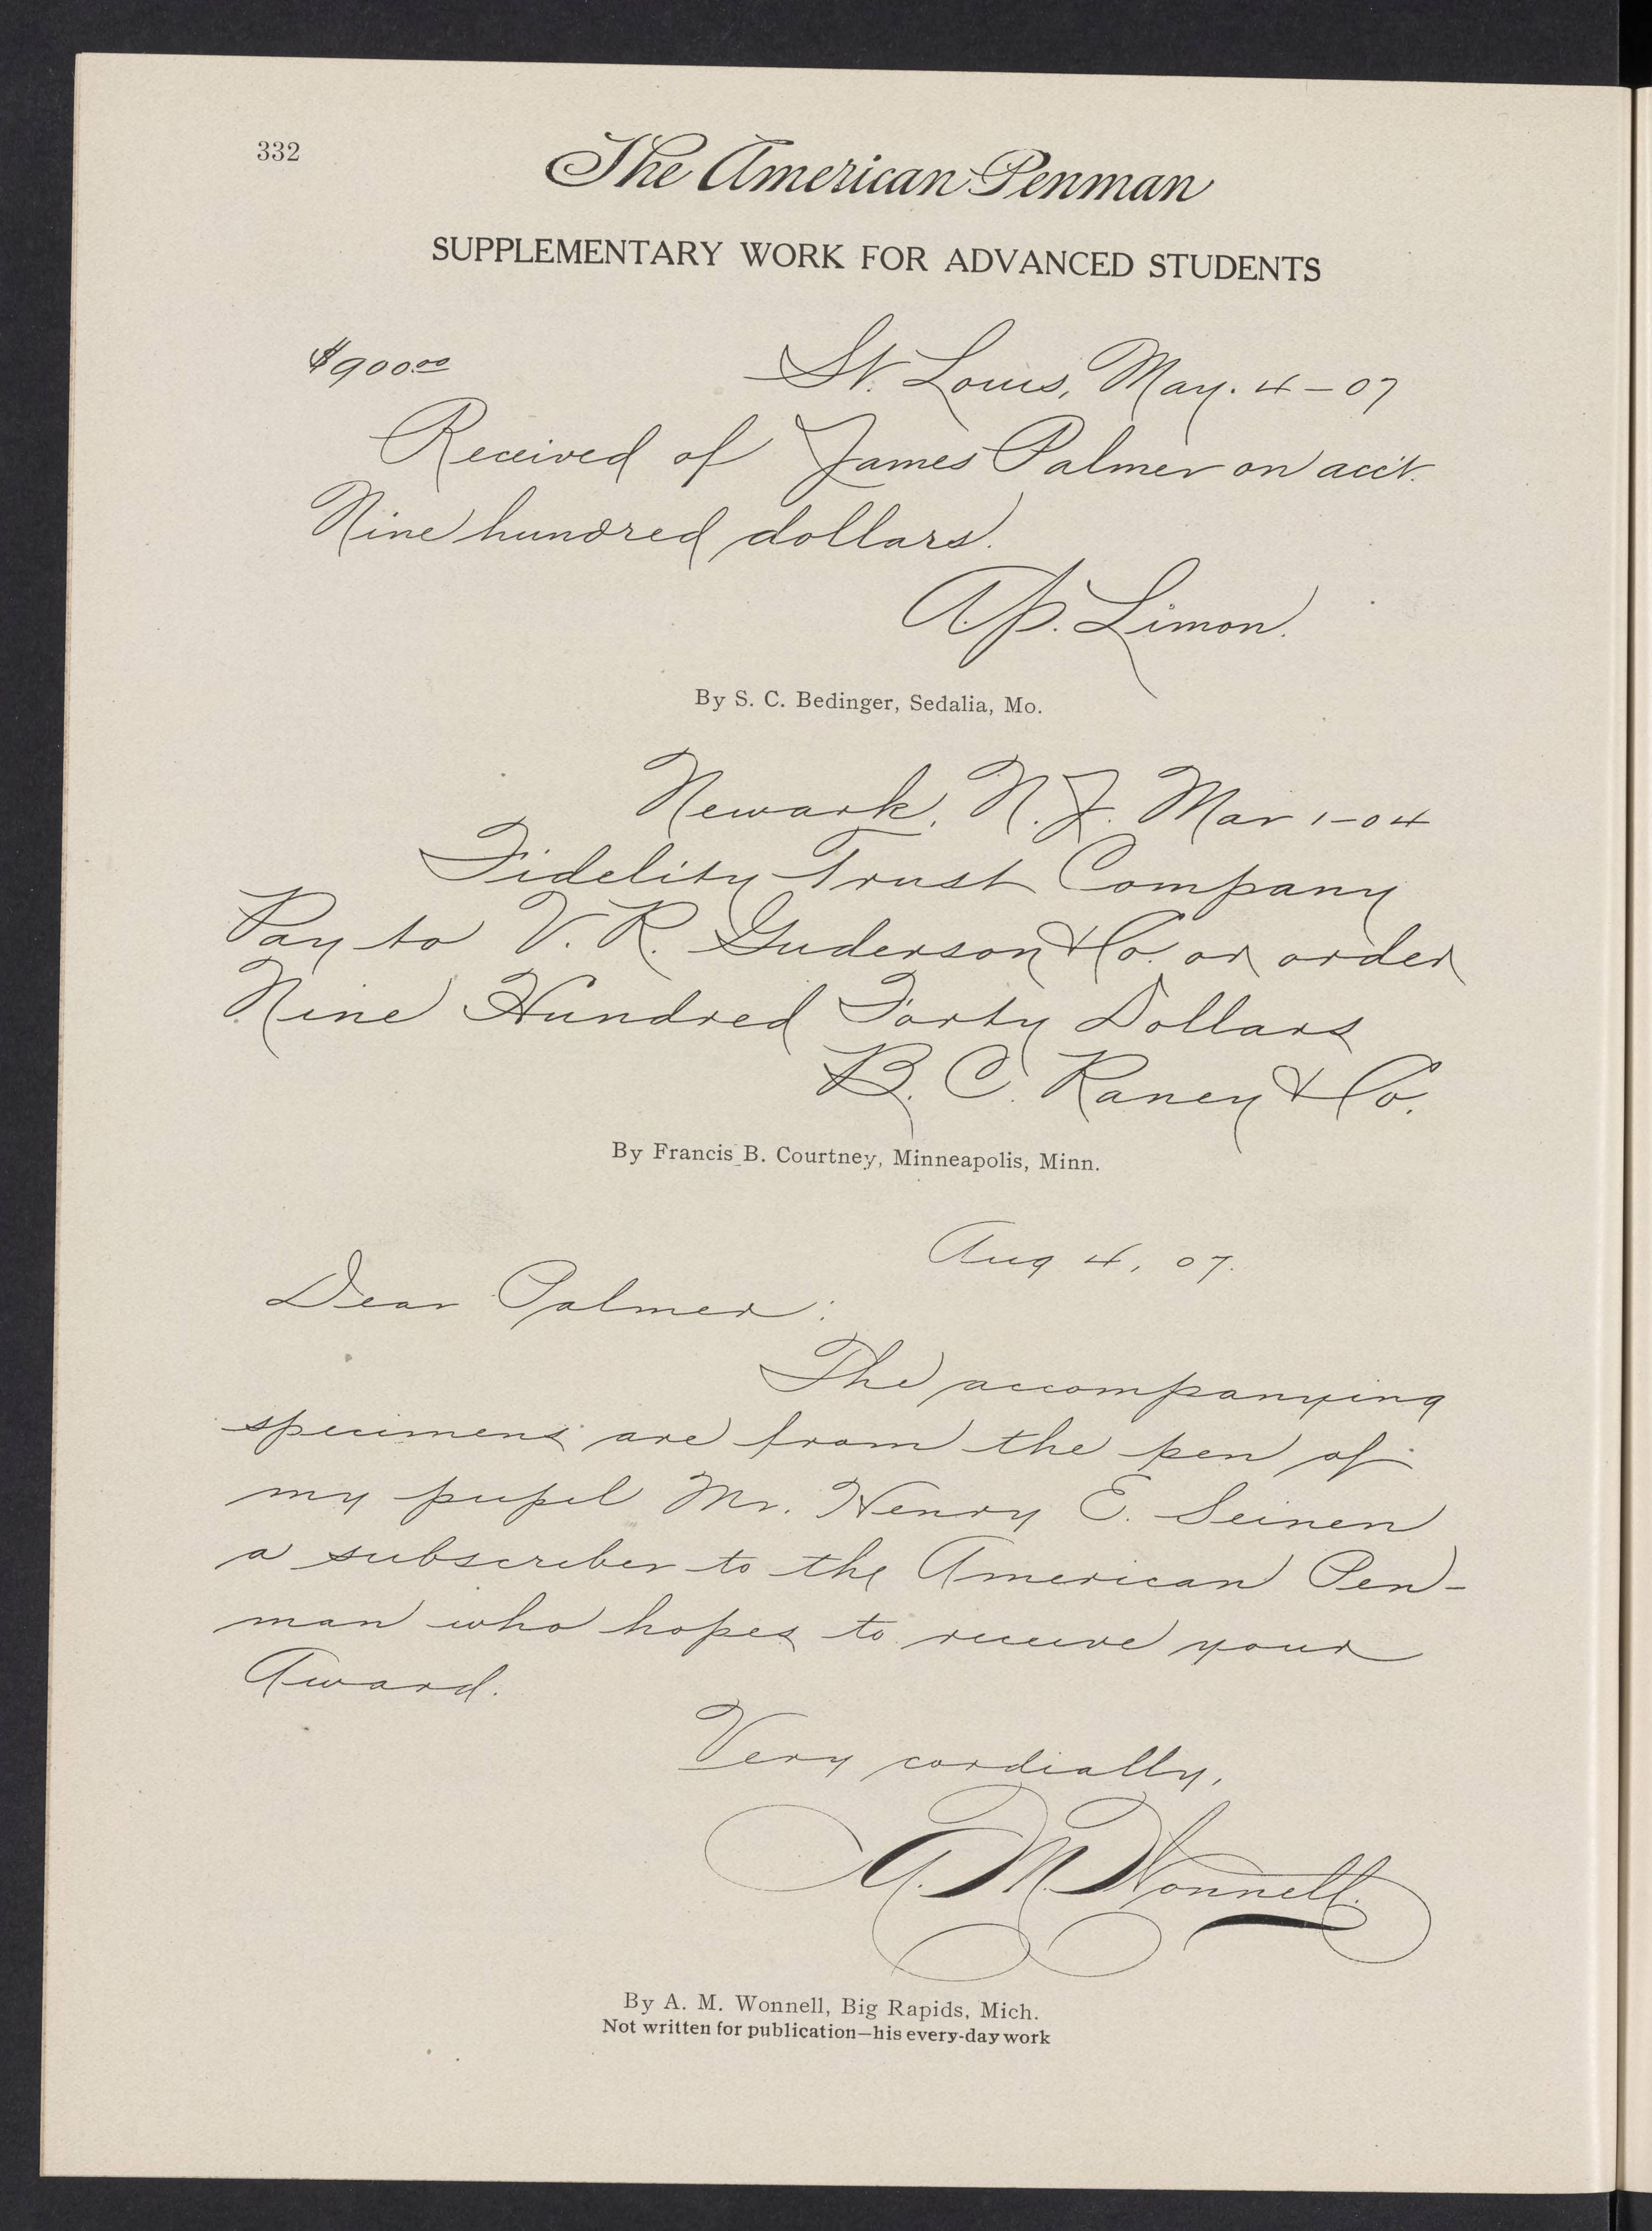 332
The American Penman
SUPPLEMENTARY WORK FOR ADVANCED STUDENTS
$900.00 St. Louis, May. 4-07
Received of James Palmer on acc't.
Nine hundred dollars.
A.P. Limon.
By S. C. Bedinger, Sedalia, Mo.
Newark, N.J. Mar 1-04
Fidelity Trust Company
Pay to V. R. Guderson & Co. or order
Nine Hundred Forty Dollars
B. C. Raney & Co.
By Francis B. Courtney, Minneapolis, Minn.
Aug 4, 07.
Dear Palmer:
The accompanying
specimens are from the pen of
my pupil Mr. Henry E. Seinen
a subscriber to the American Pen-
man who hopes to receive your
Award.
Very cordially,
A. M. Wonnell.
By A. M. Wonnell, Big Rapids, Mich.
Not written for publication—his every-day work